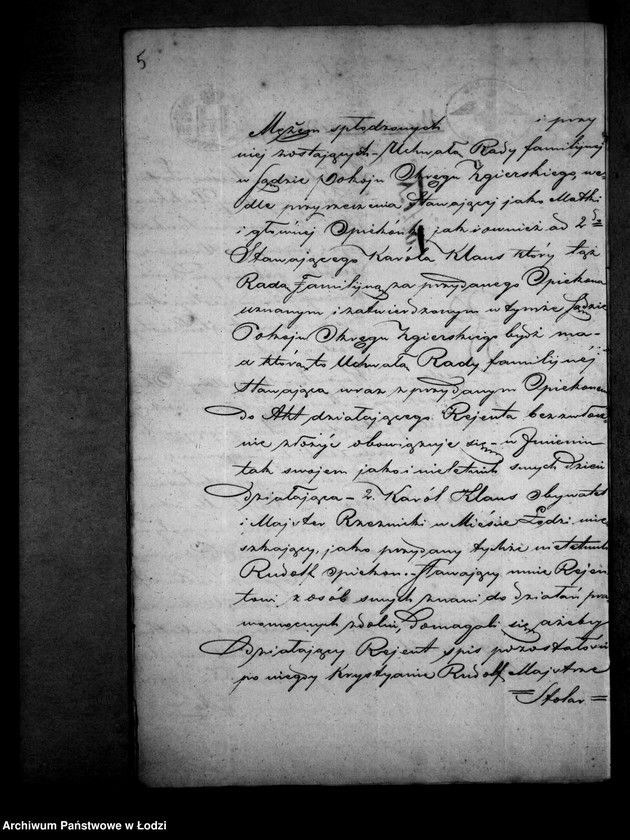 5
Mężem spłodzonych i przy
niej zostających – Uchwałą Rady familijnej
w Sądzie Pokoju Okręgu Zgierskiego we-
dle przyrzeczenia Stawającej jako Matki
i głównej Opiekunki jak i również ad 2do
Stawającego Karóla Klaus który tąż
Radą Familijną za przydanego Opiekuna
uznanym i zatwierdzonym w tymże Sądzie
Pokoju Okręgu Zgierskiego bydź ma –
a którą to Uchwałę Rady familijnéj
Stawająca wraz z przydanym Opiekunem
do Akt działającego Rejenta bezzwłocz-
nie złożyć obowiązuje się – w Imieniu
tak swojem jako i nieletnich swych dzieci
działająca – 2. Karól Klaus Obywatel
i Majster Rzeźnicki w Mieście Łodzi mie
szkający, jako przydany tychże nieletnich
Rudolf opiekun. – Stawający mnie Rejen
towi z osób swych znani do działań pra
womocnych zdolni, Domagali się, ażeby
działający Rejent spis pozostałości
po niegdy Krystyanie Rudolf Majstrze
= Stolar =
Archiwum Państwowe w Łodzi